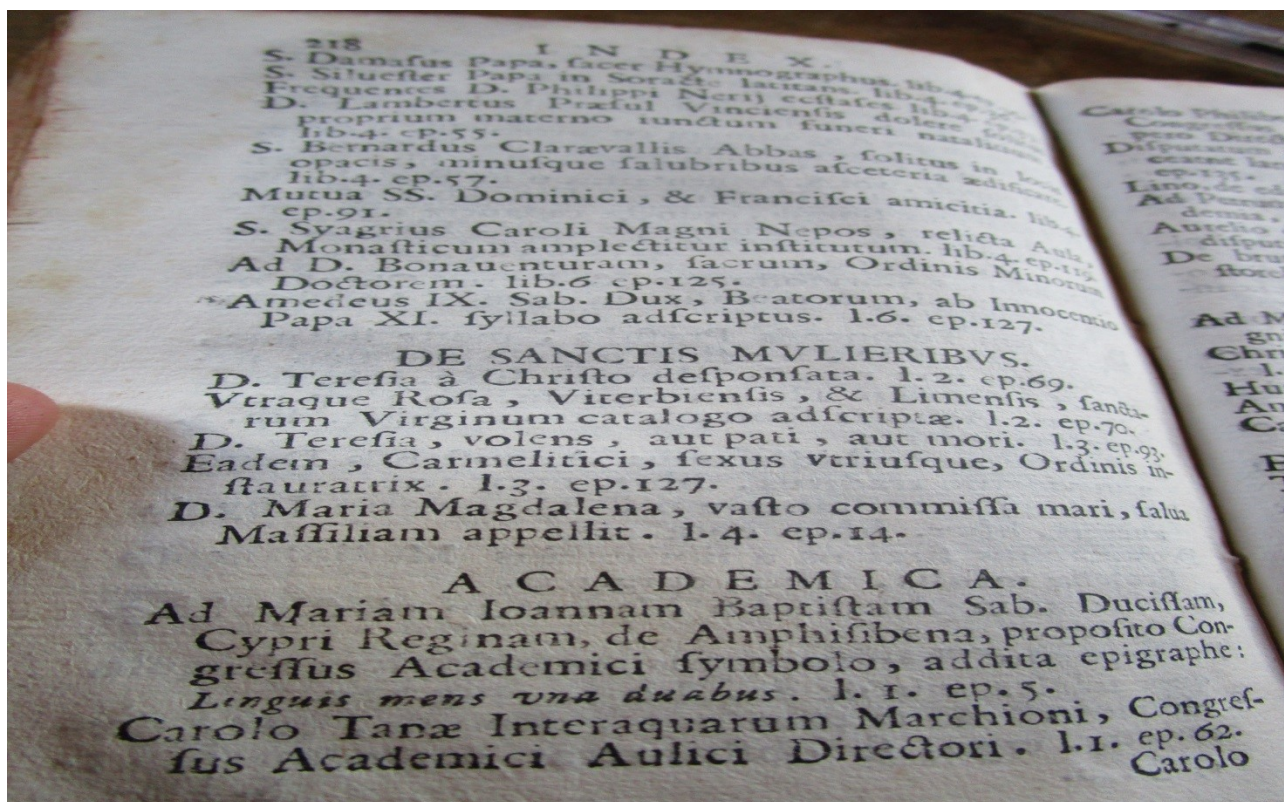 218 INDEX.
S. Damaſus Papa, ſacer Hymnographus. lib.4.
S. Silueſter Papa in Soracte latitans. lib.4. ep.
Frequentes D. Philippi Nerij ecſtaſes lib.4.
D. Lambertus Præſul Vincienſis dolere
proprium materno iunctum funeri natalitium
lib.4. ep.55.
S. Bernardus Clarævallis Abbas, ſolitus in locis
opacis, minuſque ſalubribus aſceteria ædificare.
lib.4. ep.57.
Mutua SS. Dominici, & Franciſci amicitia. lib.4.
ep.91.
S. Syagrius Caroli Magni Nepos, relicta Aula,
Monaſticum amplectitur inſtitutum. lib.4. ep.119.
Ad D. Bonauenturam, ſacrum, Ordinis Minorum
Doctorem. lib.6 ep.125.
Amedeus IX. Sab. Dux, Beatorum, ab Innocentio
Papa XI. ſyllabo adſcriptus. l.6. ep.127.
DE SANCTIS MVLIERIBVS.
D. Tereſia à Chriſto deſponſata. l.2. ep.69.
Vtraque Roſa, Viterbienſis, & Limenſis, ſancta-
rum Virginum catalogo adſcriptæ. l.2. ep.70.
D. Tereſia, volens, aut pati, aut mori. l.3. ep.93.
Eadem, Carmelitici, ſexus vtriuſque, Ordinis in-
ſtauratrix. l.3. ep.127.
D. Maria Magdalena, vaſto commiſſa mari, ſalua
Maſſiliam appellit. l.4. ep.14.
ACADEMICA.
Ad Mariam Ioannam Baptiſtam Sab. Duciſſam,
Cypri Reginam, de Amphiſibena, propoſito Con-
greſſus Academici ſymbolo, addita epigraphe:
Linguis mens vna duabus. l.1. ep.5.
Carolo Tanæ Interaquarum Marchioni, Congreſ-
ſus Academici Aulici Directori. l.1. ep.62.
Carolo
Lino, de
Ad
Aurelio
De
Ad